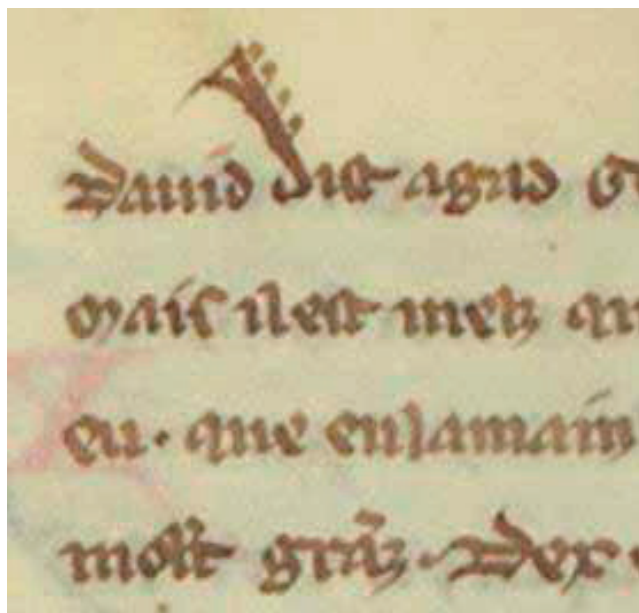 Dauid dist agad
Mais il est melz
eu · que en la main
molt granz · Dex